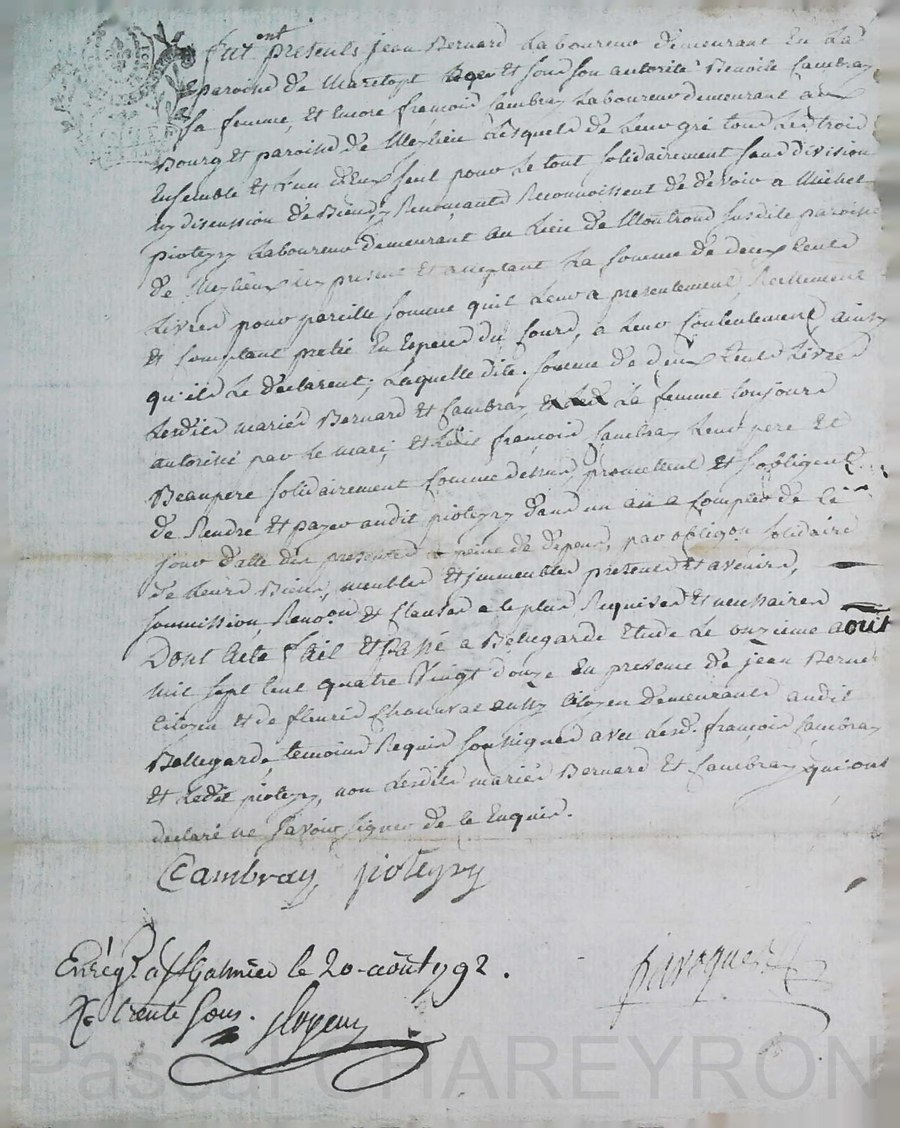 Furent presents jean Bernard Laboureur demeurant En La
paroisse de Maretopt Lequel et sous son autorité Benoite Cambray
Sa femme, et Encore françois Cambray Laboureur demeurant au
Bourg Et paroisse de Meylieu Lesquels de Leur gré tous Les trois
Ensemble et L'un d'Eux seul pour Le tout solidairement sans division
ny discussion de Biens, y Renonçants Reconnoissent de devoir a Michel
pioteyry Laboureur demeurant au Lieu de Montrond susdite paroisse
de Meylieux icy present et acceptant La somme de deux Cents
Livres pour pareille somme quil Leur a presentement, Reellement
et Comptant preté En Especes du Cours, a Leur Contentement ainsy
qu'ils Le declarent; Laquelle dite somme de deux Cents Livres
Lesdits mariés Bernard Et Cambray La femme toujours
autorisée par Le mari, et Ledit françois Cambray Leur pere et
Beaupere solidairement Comme dessus, promettent et s'obligent
de Rendre et payer audit pioteyry dans un an a Compter de Ce
jour datte des presentes a peine de depens, par obligon solidaire
de Leurs Biens, meubles et immeubles presents et avenirs,
soumission, Renon. et Clauses a ce plus Requises et necessaires
Dont Acte fait et passé a Bellegarde Etude Le onzieme août
mil sept cent quatre Vingt douze En presence de jean
Citoyen et de fleurie aussy Citoyen demeurants audit
Bellegarde, temoins Requis soussignés avec Lesd. françois Cambray
Et Ledit pioteyry, non Lesdits mariés Bernard Et Cambray qui ont
declaré ne savoir signer de ce Enquis.
Cambray pioteyry
Enrég. a St Galmier le 20 août 1792.
R. trente sous.
Pascal CHAREYRON